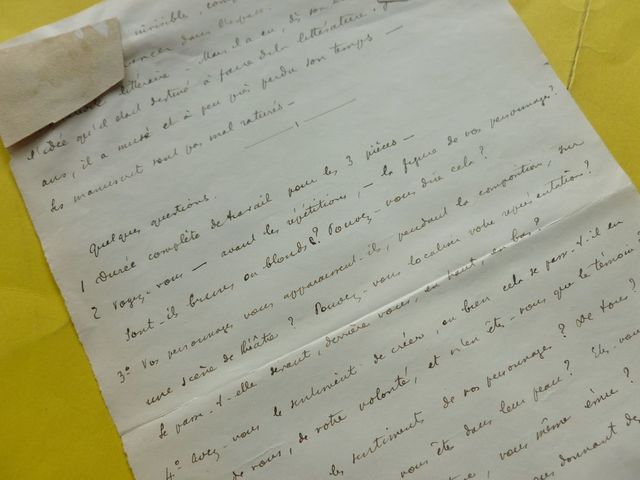 invisible,
dans l'espace.
littéraire — Mais il a eu, dès son
l'idée qu'il était destiné à faire de la littérature,
ans, il a musé et à peu près perdu son temps —
Les manuscrits sont pas mal raturés —
Quelques questions.
1 Durée complète de travail pour les 3 pièces —
2 Voyez-vous — avant les répétitions, — la figure de vos personnages?
Sont-ils bruns ou blonds? Pouvez-vous dire cela?
3° Vos personnages vous apparaissent-ils, pendant la composition, sur
une scène de théâtre? Pouvez-vous localiser votre représentation?
Se passe-t-elle devant, derrière vous, en haut, en bas?
4° Avez-vous le sentiment de créer, ou bien cela se passe-t-il en
de vous, de votre volonté, et n'en êtes-vous que le témoin?
les sentiments de vos personnages? De tous?
vous êtes dans leur peau? Etes-vous
vous même émue?
donnant des